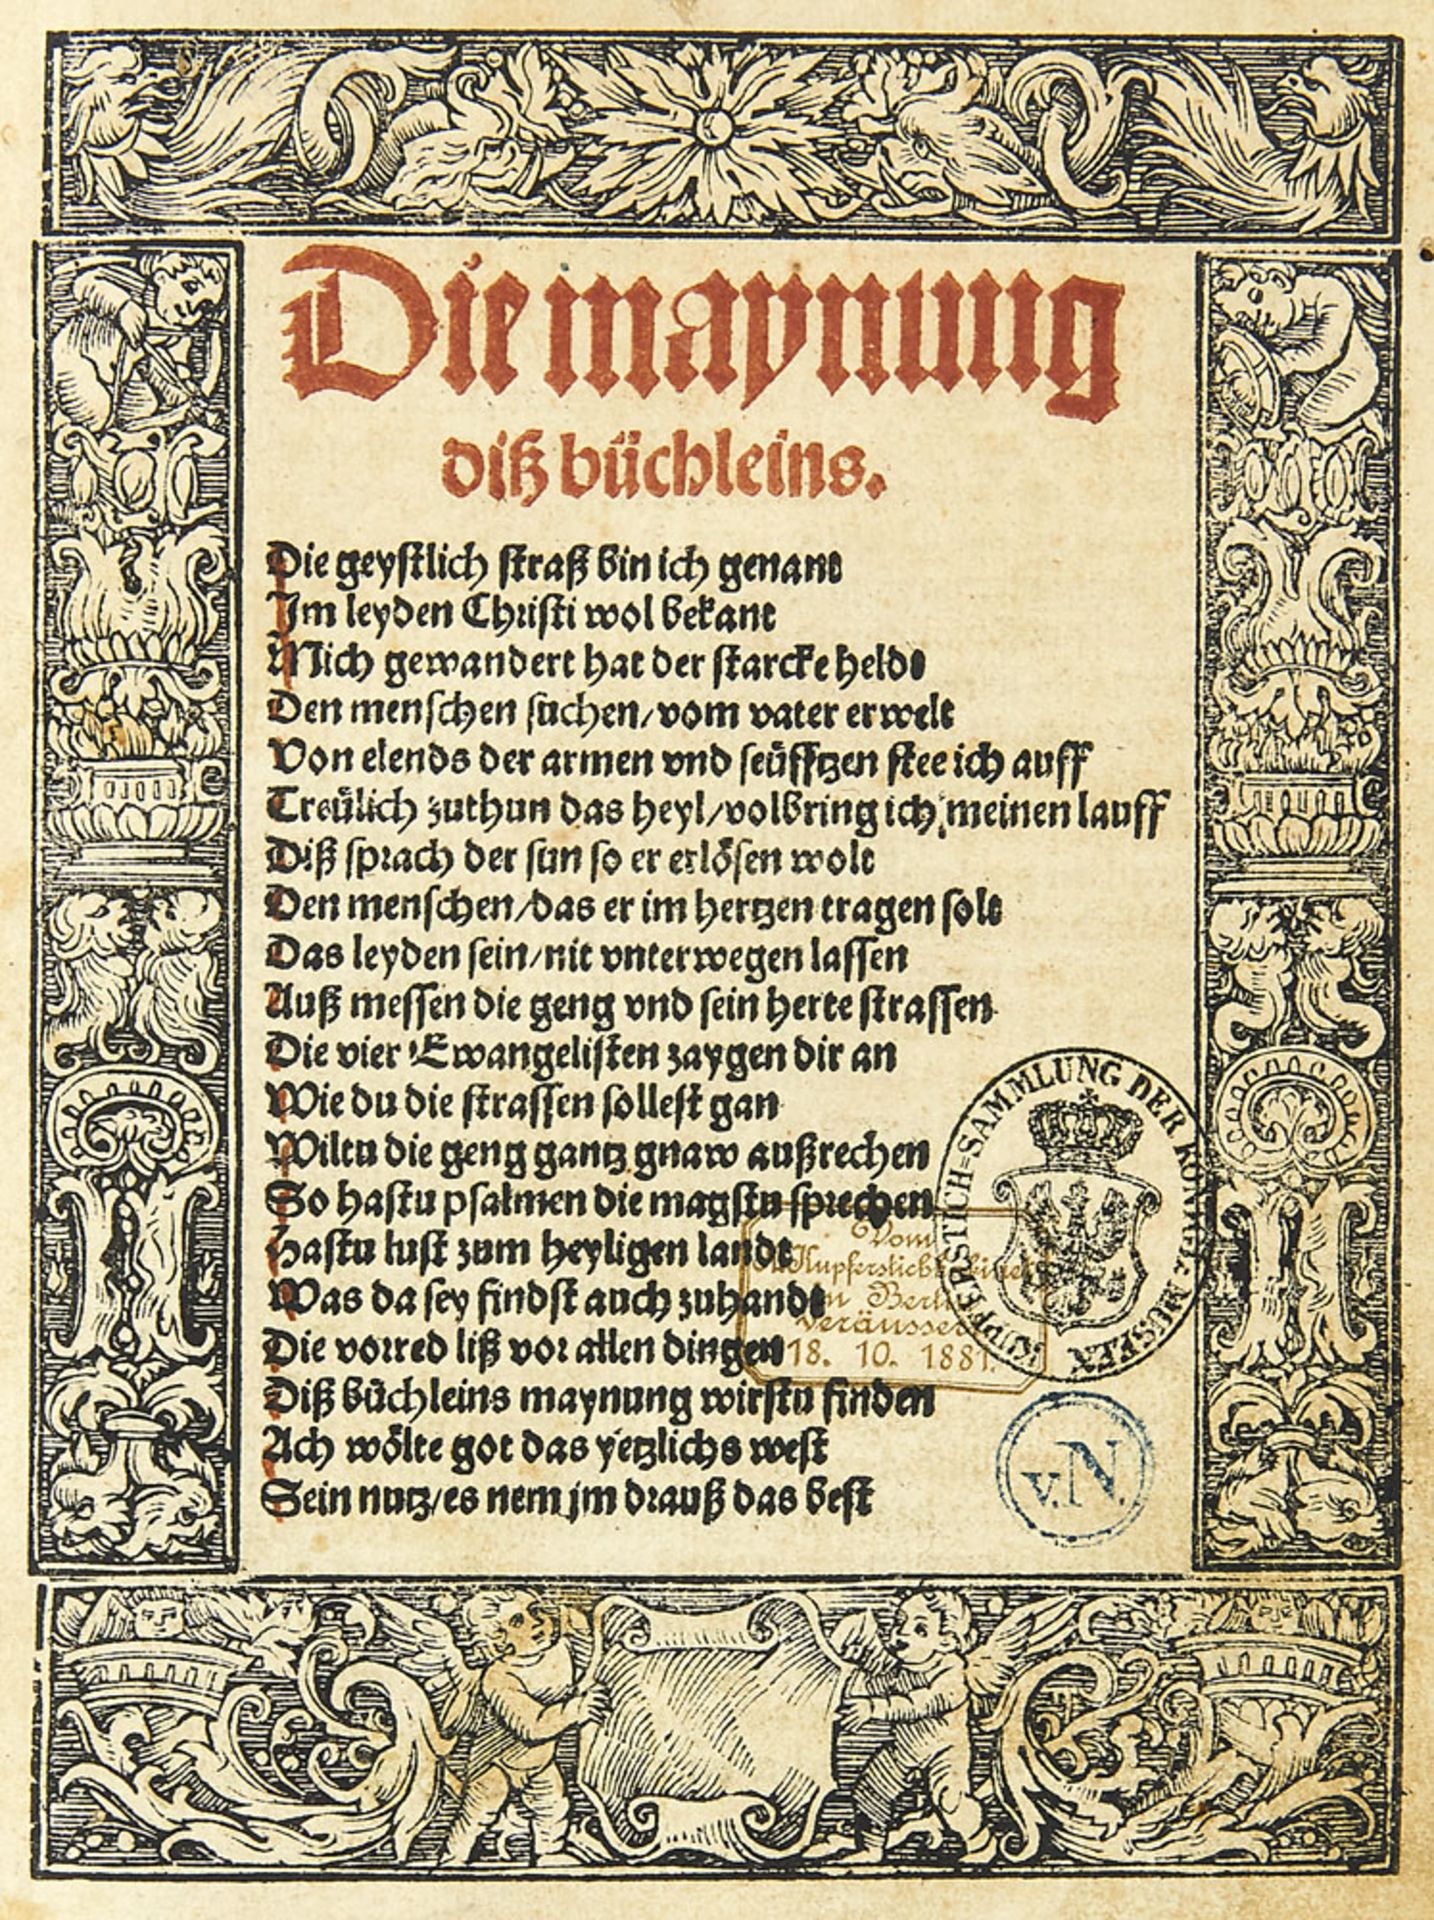 Die maynung
diß büchleins.
Die geystlich straß bin ich genant
Im leyden Christi wol bekant
Mich gewandert hat der starcke heldt
Den menschen suchen/vom vater erwelt
Von elends der armen vnd seüfftzen stee ich auff
Treülich zuthun das heyl/volbring ich meinen lauff
Diß sprach der sun so er erlösen wolt
Den menschen/das er im hertzen tragen solt
Das leyden sein/nit vnterwegen lassen
Auß messen die geng vnd sein herte strassen
Die vier Ewangelisten zaygen dir an
Wie du die strassen sollest gan
Wiltu die geng gantz gnaw außrechen
So hastu psalmen die magstu sprechen
Hastu lust zum heyligen landt
Was da sey findst auch zuhandt
Die vorred liß vor allen dingen
Diß büchleins maynung wirstu finden
Ach wölte got das yetzlichs west
Sein nutz/es nem jm drauß das best
KUPFERSTICH=SAMMLUNG DER KÖNIGL: MUSEEN
Vom
Berlin
veräussert
18. 10. 1881.
v.N.